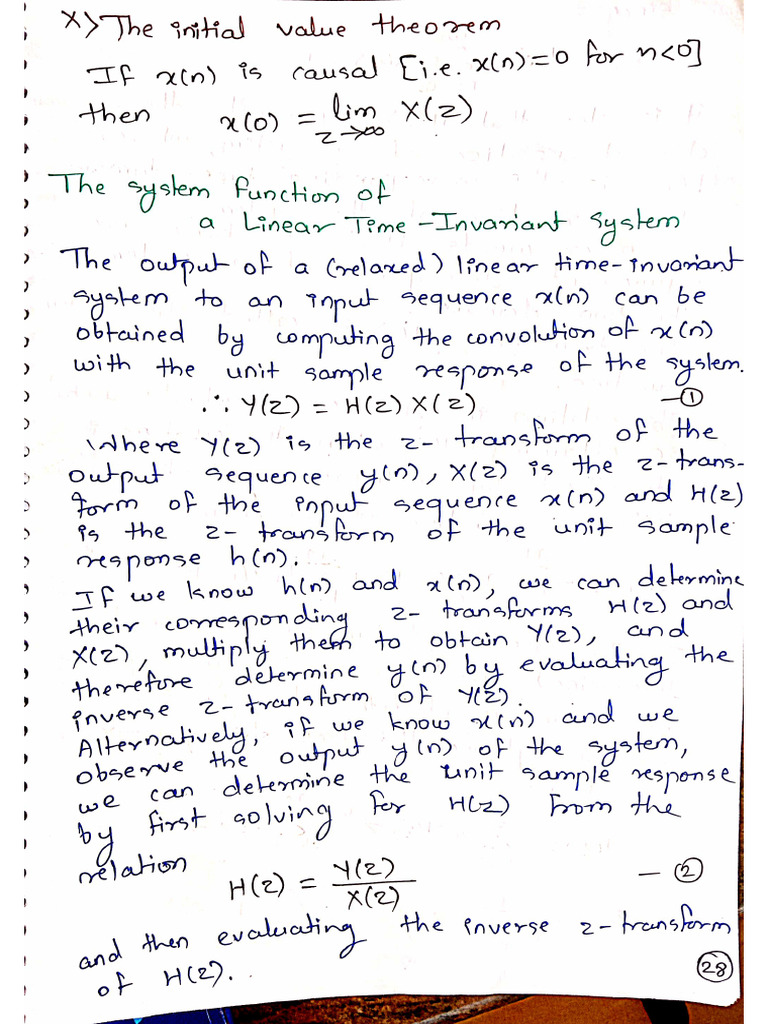 X) The initial value theorem
If x(n) is causal [i.e. x(n)=0 for n<0]
then x(0) = lim X(z)
z→∞
The system function of
a Linear Time-Invariant System
The output of a (relaxed) linear time-invariant
system to an input sequence x(n) can be
obtained by computing the convolution of x(n)
with the unit sample response of the system.
∴ Y(z) = H(z) X(z) —①
Where Y(z) is the z-transform of the
output sequence y(n), X(z) is the z-trans-
form of the input sequence x(n) and H(z)
is the z-transform of the unit sample
response h(n).
If we know h(n) and x(n), we can determine
their corresponding z-transforms H(z) and
X(z), multiply them to obtain Y(z), and
therefore determine y(n) by evaluating the
inverse z-transform of Y(z).
Alternatively, if we know x(n) and we
observe the output y(n) of the system,
we can determine the unit sample response
by first solving for H(z) from the
relation
H(z) = Y(z)/X(z) —②
and then evaluating the inverse z-transform
of H(z).
28